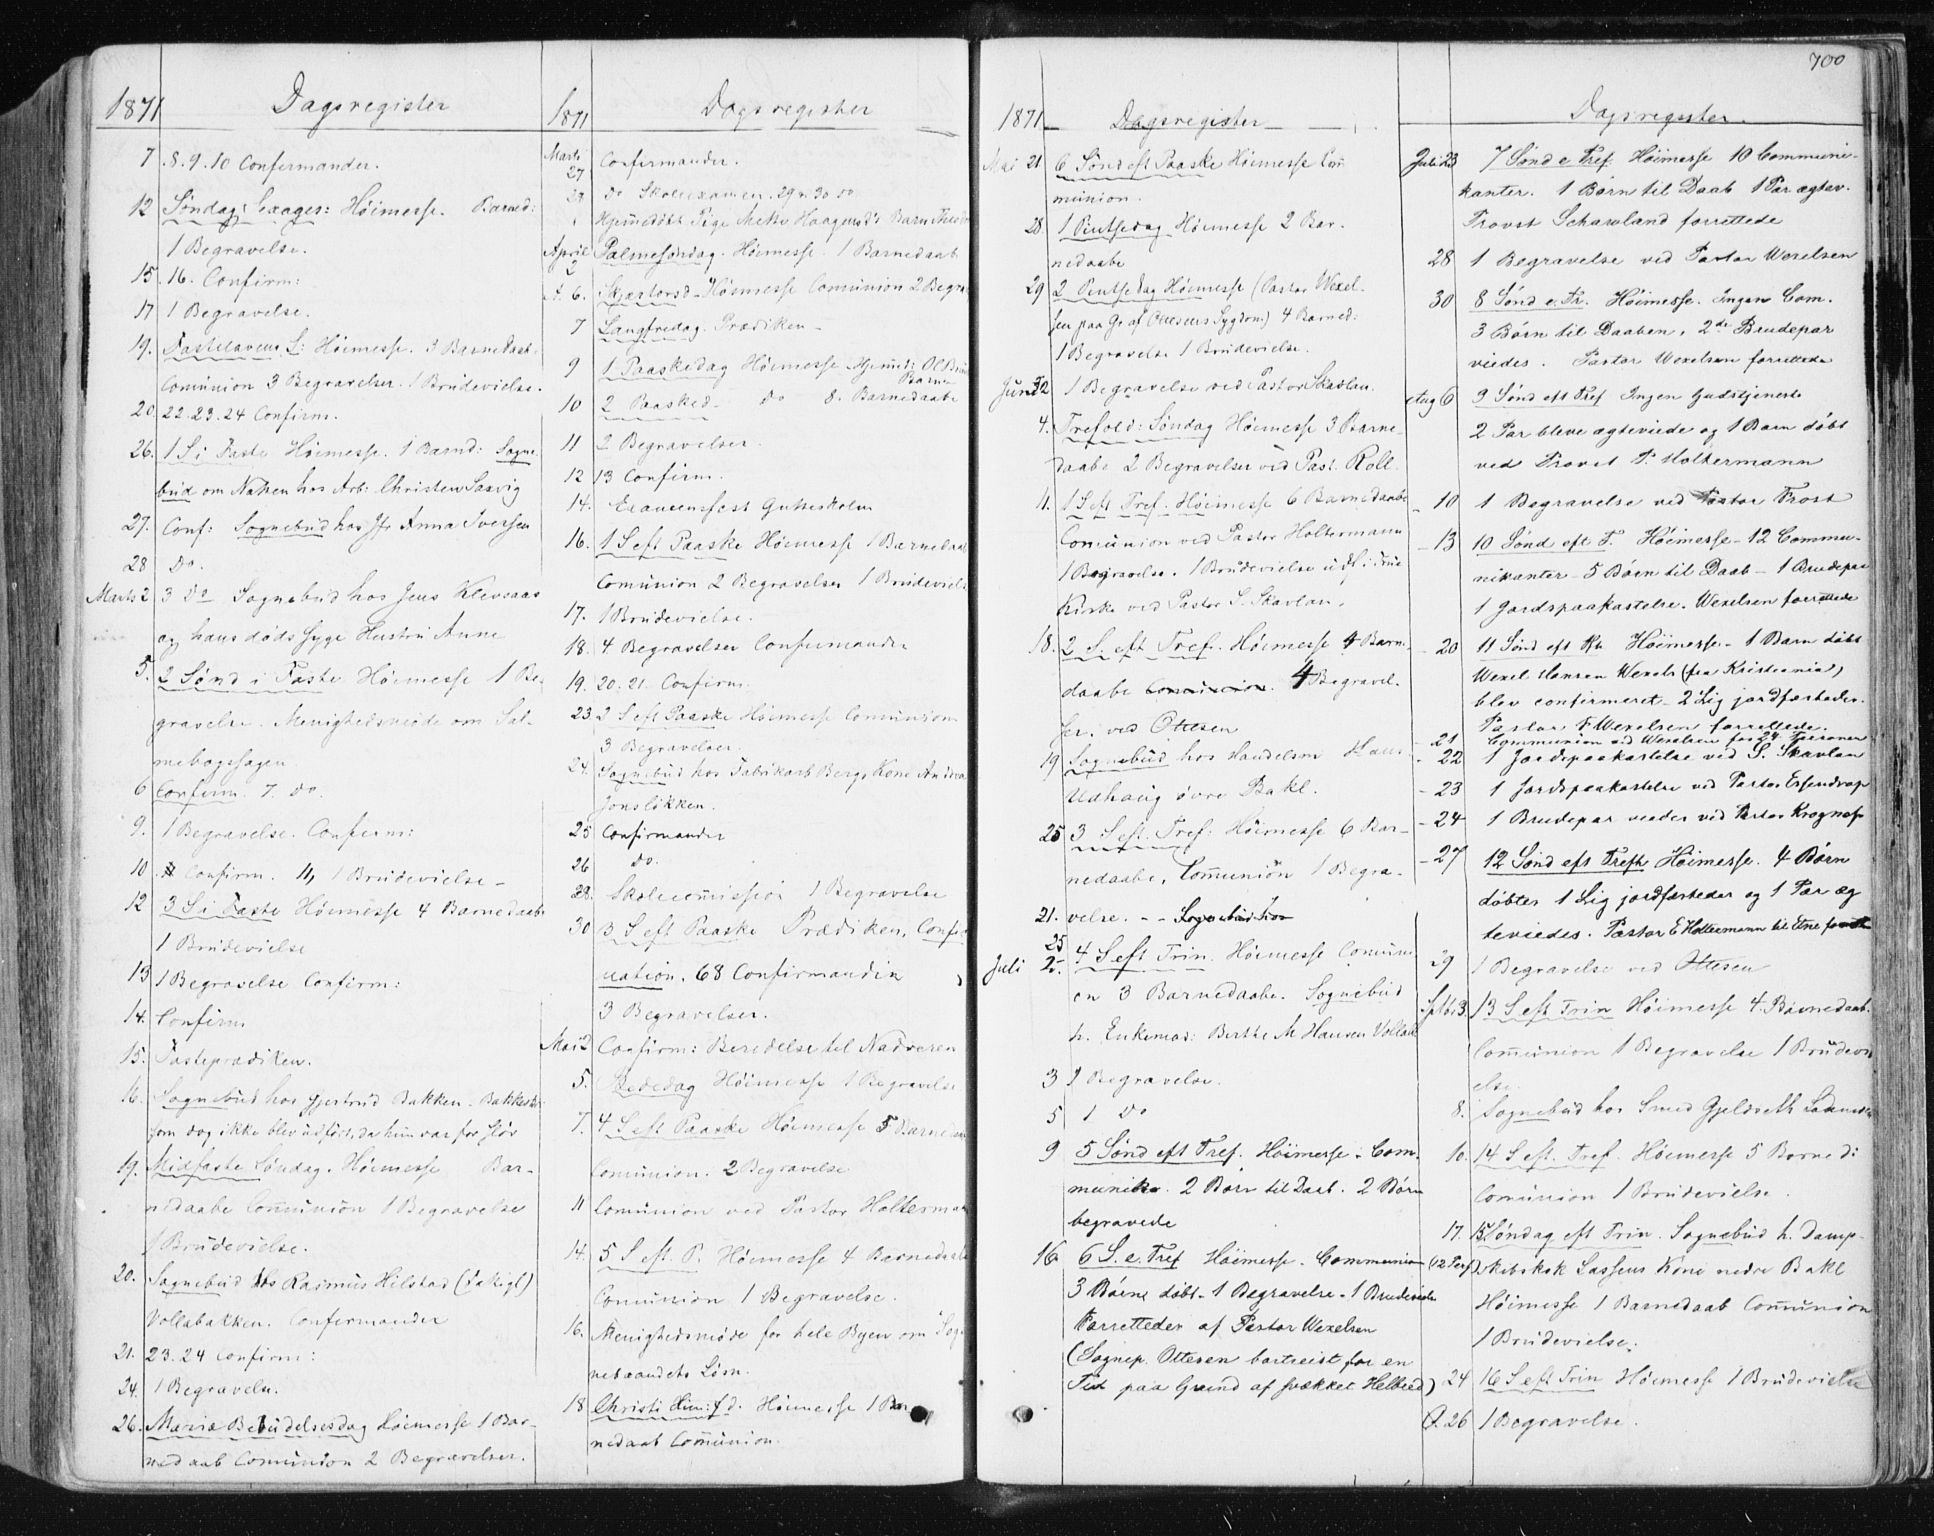 1871 Dagsregister
7 .8.9.10 Confirmander.
12 Søndag Sexages: Høimesse. Barned:
1 Begravelse.
15. 16. Confirm:
17 1 Begravelse.
19. Fastelavens S: Høimesse. 3 Barnedaab.
Comunion 3 Begravelser. 1 Brudevielse.
20. 22.23.24 Confirm.
26. 1 S i Faste Høimesse. 1 Barned: Sogne-
bud om Natten hos Arb: Christen Saxvig
27. Conf: Sognebud hos Jfr Anna Iversen
28 Do.
Marts 2 3 Do Sognebud hos Jens Klevsaas
og hans dødssyge Hustru Anne
5. 2 Sønd i Faste Høimesse 1 Be-
gravelse. Menighedsmøde om Sal-
mebogssagen
6 Confirm. 7. do.
9. 1 Begravelse. Confirm:
10. Confirm. 11, 1 Brudevielse
12 3 S i Faste Høimesse 4 Barnedaabe
1 Brudevielse
13 1 Begravelse Confirm:
14. Confirm
15. Fasteprædiken.
16. Sognebud hos Gjertrud Bakken. Bakke
som dog ikke blev udført, da hun var for sløv
19. Midfaste Søndag. Høimesse Bar-
nedaabe Comunion 1 Begravelse
1 Brudevielse.
20. Sognebud hos Rasmus Hilstad (fakigl)
Vollabakken. Confirmander
21. 23.24 Confirm:
24. 1 Begravelse.
26. Mariæ Bebudelsesdag Høimesse 1 Bar-
nedaab Comunion 2 Begravelser.
1871 Dagsregister
Marts 27 Confirmander.
29 do Skoleexamen. 29 n. 30 do
Hjemmedøbt Pige Mette Haagens's Barn
April 2 Palmesøndag. Høimesse. 1 Barnedaab
A. 6. Skjærtorsd. Høimesse Comunion 2 Begra
7 Langfredag. Prædiken
9 1 Paaskedag Høimesse
10 2 Paasked. Do 8. Barnedaabe
11 2 Begravelser.
12 13 Confirm.
14. Examensfest Gutteskolen
16. 1 S eft Paaske Høimesse 1 Barnedaab
Comunion 2 Begravelser 1 Brudevielse
17. 1 Brudevielse.
18. 4 Begravelser Confirmander
19. 20. 21. Confirm.
23 2 S eft Paaske Høimesse Comunion
3 Begravelser.
24. Sognebud hos Fabrikarb Bergs Kone
Jonsløkken.
25 Confirmander
26 do.
28. Skolecomission 1 Begravelse
30 3 S eft Paaske Prædiken, Confir-
mation. 68 Confirmander
3 Begravelser.
Mai 2 Confirm: Beredelse til Nadveren
5. Bededag Høimesse 1 Begravelse
7. 4 S eft Paaske Høimesse 5 Barnedaabe
Comunion. 2 Begravelse
11 Comunion ved Pastor Holtermann
14. 5 S eft. P. Høimesse 4 Barnedaabe
Comunion 1 Begravelse.
16. Menighedsmøde for hele Byen om Sog-
nebaandets Løsn.
18 Christi Him:fd. Høimesse 1 Bar
nedaab Comunion.
1871 Dagsregister
Mai 21 6 Sønd eft Paaske Høimesse Com
munion.
28. 1 Pintsedag Høimesse 2 Bar-
nedaabe
29 2 Pintsedag Høimesse (Pastor Wexel-
sen paa Gr af Ottesens Sygdom) 4 Barned:
1 Begravelse 1 Brudevielse.
Juni 2 1 Begravelse ved Pastor Skavlan.
4. Trefold: Søndag Høimesse 3 Barne-
daabe 2 Begravelser ved Past. Roll.
11. 1 S eft Tref. Høimesse 6 Barnedaabe
Comunion ved Pastor Holtermann
1 Begravelse. 1 Brudevielse i Frue
Kirke ved Pastor S. Skavlan.
18. 2 S. eft Tref. Høimesse 4 Barne-
daabe Comunion. 4 Begravel-
ser. ved Ottesen
19 Sognebud hos Handelsm Hans
Udhaug øvre Bakl.
25 3 S eft. Tref: Høimesse 6 Bar-
nedaabe, Communion 1 Begra-
21. velse. - - Sognebud hos
25
Juli 2. 4 S eft Trin. Høimesse Comuni
on 3 Barnedaabe. Sognebud
h. Enkemad: Berthe M Hansen Vollab
3 1 Begravelse.
5 1 do
9 5 Sønd eft Tref. Höimesse. Com-
munike. 2 Børn til Daab. 2 Börn
begravede
16 6 S. e. Tref Höimesse. Communion (12 Pers)
3 Börne döbt. 1 Begravelse. 1 Brudevielse
Forretteder af Pastor Wexelsen
(Sognep. Ottesen bortreist for en
Tid paa Grund af svækket Helbred)
700
Dagsregister.
Juli 23 7 Sönd e Tref. Höimesse 10 Communi-
kanter. 1 Börn til Daab 1 Par ægtev.
Provst Schavland forrettede
28 1 Begravelse ved Pastor Wexelsen
30 8 Sönd e. Tr. Höimesse. Ingen Com.
3 Börn til Daaben, 2de Brudepar
viedes. Pastor Wexelsen forrettede
Aug 6 9 Sönd eft Tref Ingen Gudstjeneste
2 Par bleve ægteviede og 1 Barn döbt
ved Provst P. Holtermann
- 10 1 Begravelse ved Pastor Frost
- 13 10 Sönd eft T. Höimesse - 12 Commu-
nikanter - 5 Börn til Daab - 1 Brudepar
1 Jordspaakastelse. Wexelsen forrettede
- 20 11 Sönd eft Höimesse - 1 Barn döbt
Wexel Hansen Wexels (fra Kristiania)
blev confirmeret - 2 Lig jordfæstedes.
Pastor F Wexelsen forrettede.
- 21 Communion ved Wexelsen for 24 Personer
- 22 1 Jordspaakastelse ved S. Skavlan
- 23 1 Jordspaakastelse ved Pastor
- 24 1 Brudepar viedes ved Pastor Krogness
- 27 12 Sönd eft Trefh Höimesse. 4 Börn
döbtes 1 Lig jordfæstedes og 1 Par æg
teviedes. Pastor E Holtermann til Etne
29 1 Begravelse ved Ottesen
Sptbr 3. 13 S eft Trin Høimesse 4 Barnedaab.
Comunion 1 Begravelse 1 Brudevi
else.
8. Sognebud hos Smed Gjeldseth
10. 14 S eft. Tref. Høimesse 5 Barned:
Comunion 1 Brudevielse.
17. 15 Søndag eft Trin. Sognebud h. Damp-
skibskok Sassens Kone nedre Bakl
Høimesse 1 Barnedaab Communion
1 Brudevielse.
24 16 S eft Trin Høimesse 1 Brudevielse
26 1 Begravelse.